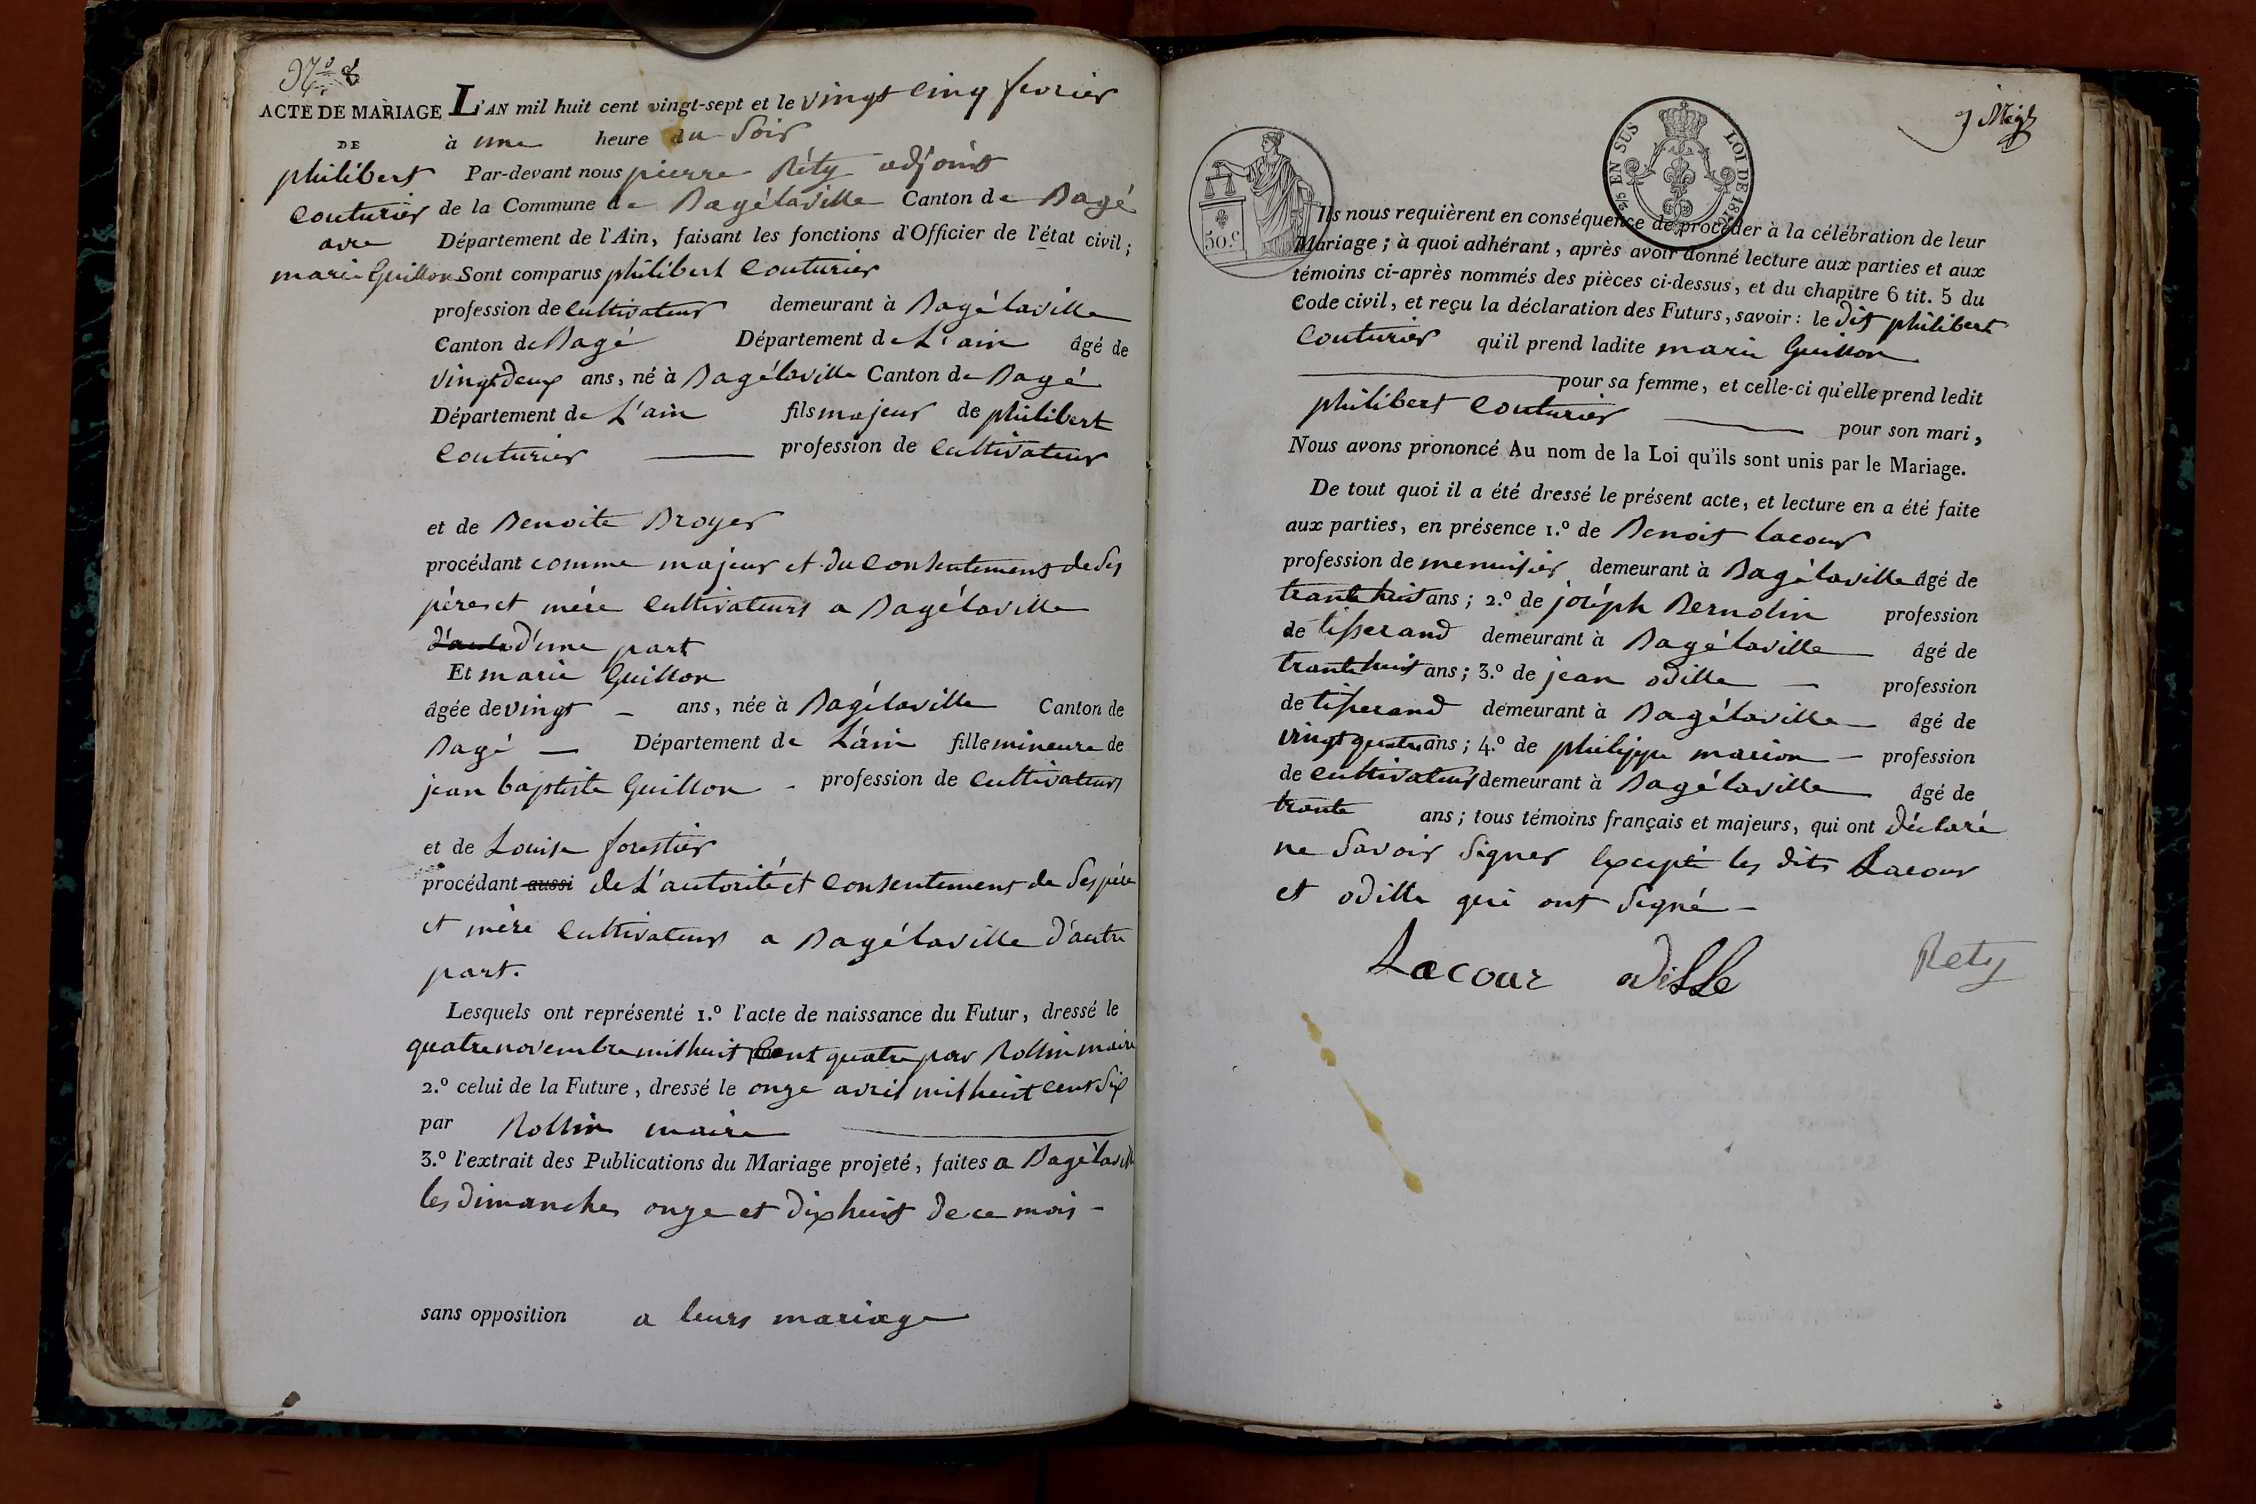 N.º 8
ACTE DE MARIAGE
DE
philibert
couturier
avec
marie Guillon
L'AN mil huit cent vingt-sept et le vingt cinq fevrier
à une heure du Soir
Par-devant nous pierre Réty adjoint
de la Commune de Bagélaville Canton de Bagé
Département de l'Ain, faisant les fonctions d'Officier de l'état civil;
Sont comparus philibert Couturier
profession de Cultivateur demeurant à Bagélaville
Canton de Bagé Département de L'ain âgé de
vingtdeux ans, né à Bagélaville Canton de Bagé
Département de L'ain fils majeur de philibert
Couturier profession de Cultivateur
et de Benoite Broyer
procédant comme majeur et du Consentement de Ses
père et mère Cultivateurs a Bagélaville
d'autre d'une part
Et marie Guillon
âgée de vingt ans, née à Bagélaville Canton de
Bagé Département de L'ain fille mineure de
jean baptiste Guillon profession de Cultivateur
et de Louise forestier
procédant aussi de L'autorité et Consentement de Ses père
et mère Cultivateurs a Bagélaville d'autre
part.
Lesquels ont représenté 1.º l'acte de naissance du Futur, dressé le
quatre novembre mil huit Cent quatre par Rollin maire
2.º celui de la Future, dressé le onze avril mil huit Cent Six
par Rollin maire
3.º l'extrait des Publications du Mariage projeté, faites a Bagélaville
les dimanches onze et dix huit de ce mois
sans opposition a leurs mariage
50 c.
EN SUS LOI DE 1816
Ils nous requièrent en conséquence de procéder à la célébration de leur
Mariage; à quoi adhérant, après avoir donné lecture aux parties et aux
témoins ci-après nommés des pièces ci-dessus, et du chapitre 6 tit. 5 du
Code civil, et reçu la déclaration des Futurs, savoir: le dit philibert
Couturier qu'il prend ladite marie Guillon
pour sa femme, et celle-ci qu'elle prend ledit
philibert Couturier pour son mari,
Nous avons prononcé Au nom de la Loi qu'ils sont unis par le Mariage.
De tout quoi il a été dressé le présent acte, et lecture en a été faite
aux parties, en présence 1.º de Benoit Lacour
profession de menuisier demeurant à Bagélaville âgé de
trante huit ans; 2.º de joséph Bernolin profession
de tisserand demeurant à Bagélaville âgé de
trante huit ans; 3.º de jean odille profession
de tisserand demeurant à Bagélaville âgé de
vingt quatre ans; 4.º de philippe marion profession
de Cultivateur demeurant à Bagélaville âgé de
trante ans; tous témoins français et majeurs, qui ont déclaré
ne Savoir Signer Excepté les dits Lacour
et odille qui ont Signé
Lacour odille Rety